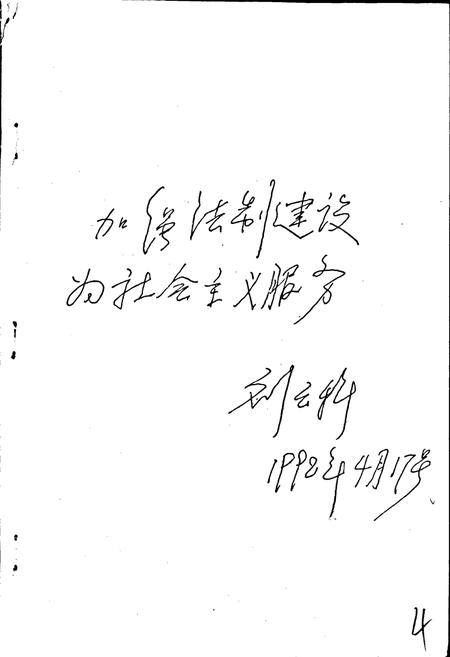 加强法制建设
为社会主义服务
刘云科
1992年4月17号
4